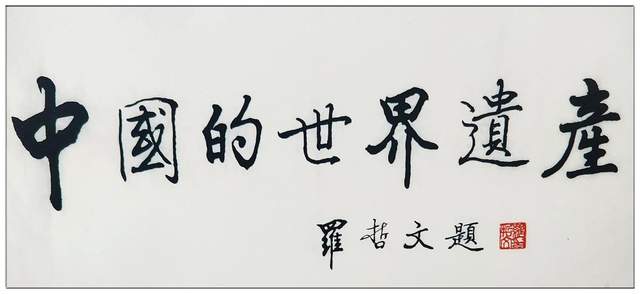 中國的世界遺產
羅哲文題